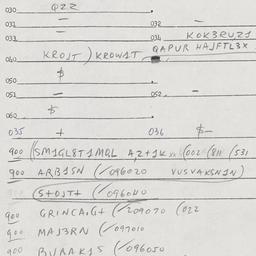 030 QZZ
031 — 032 —
033 — 034 KOK3RUZ1
KROJT ) KROW1T QAPUR HAJFTL3X
060 $
050
051 — 052 —
062 $
035 + 036 $—
900 (SM1GL8T1MGL AZ+1K (002 (811 (531
900 ARB1SN (/096020 VUSVAKSN1N)
(S+OJT+ (/096040
900 GRINCA.G+ (/209070 (022
900 MAJ3RN (/097010
900 BURAK1S (/096050